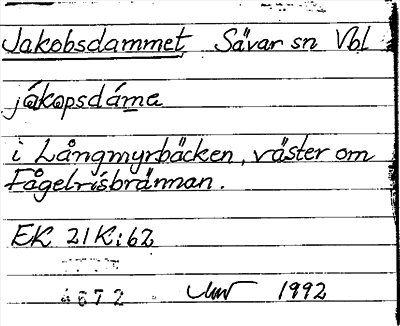 Jakobsdammet Sävar sn Vbl
jákapsdáma
i Långmyrbäcken, väster om
Fågelrisbrännan.
EK 21K:62
4672 1992